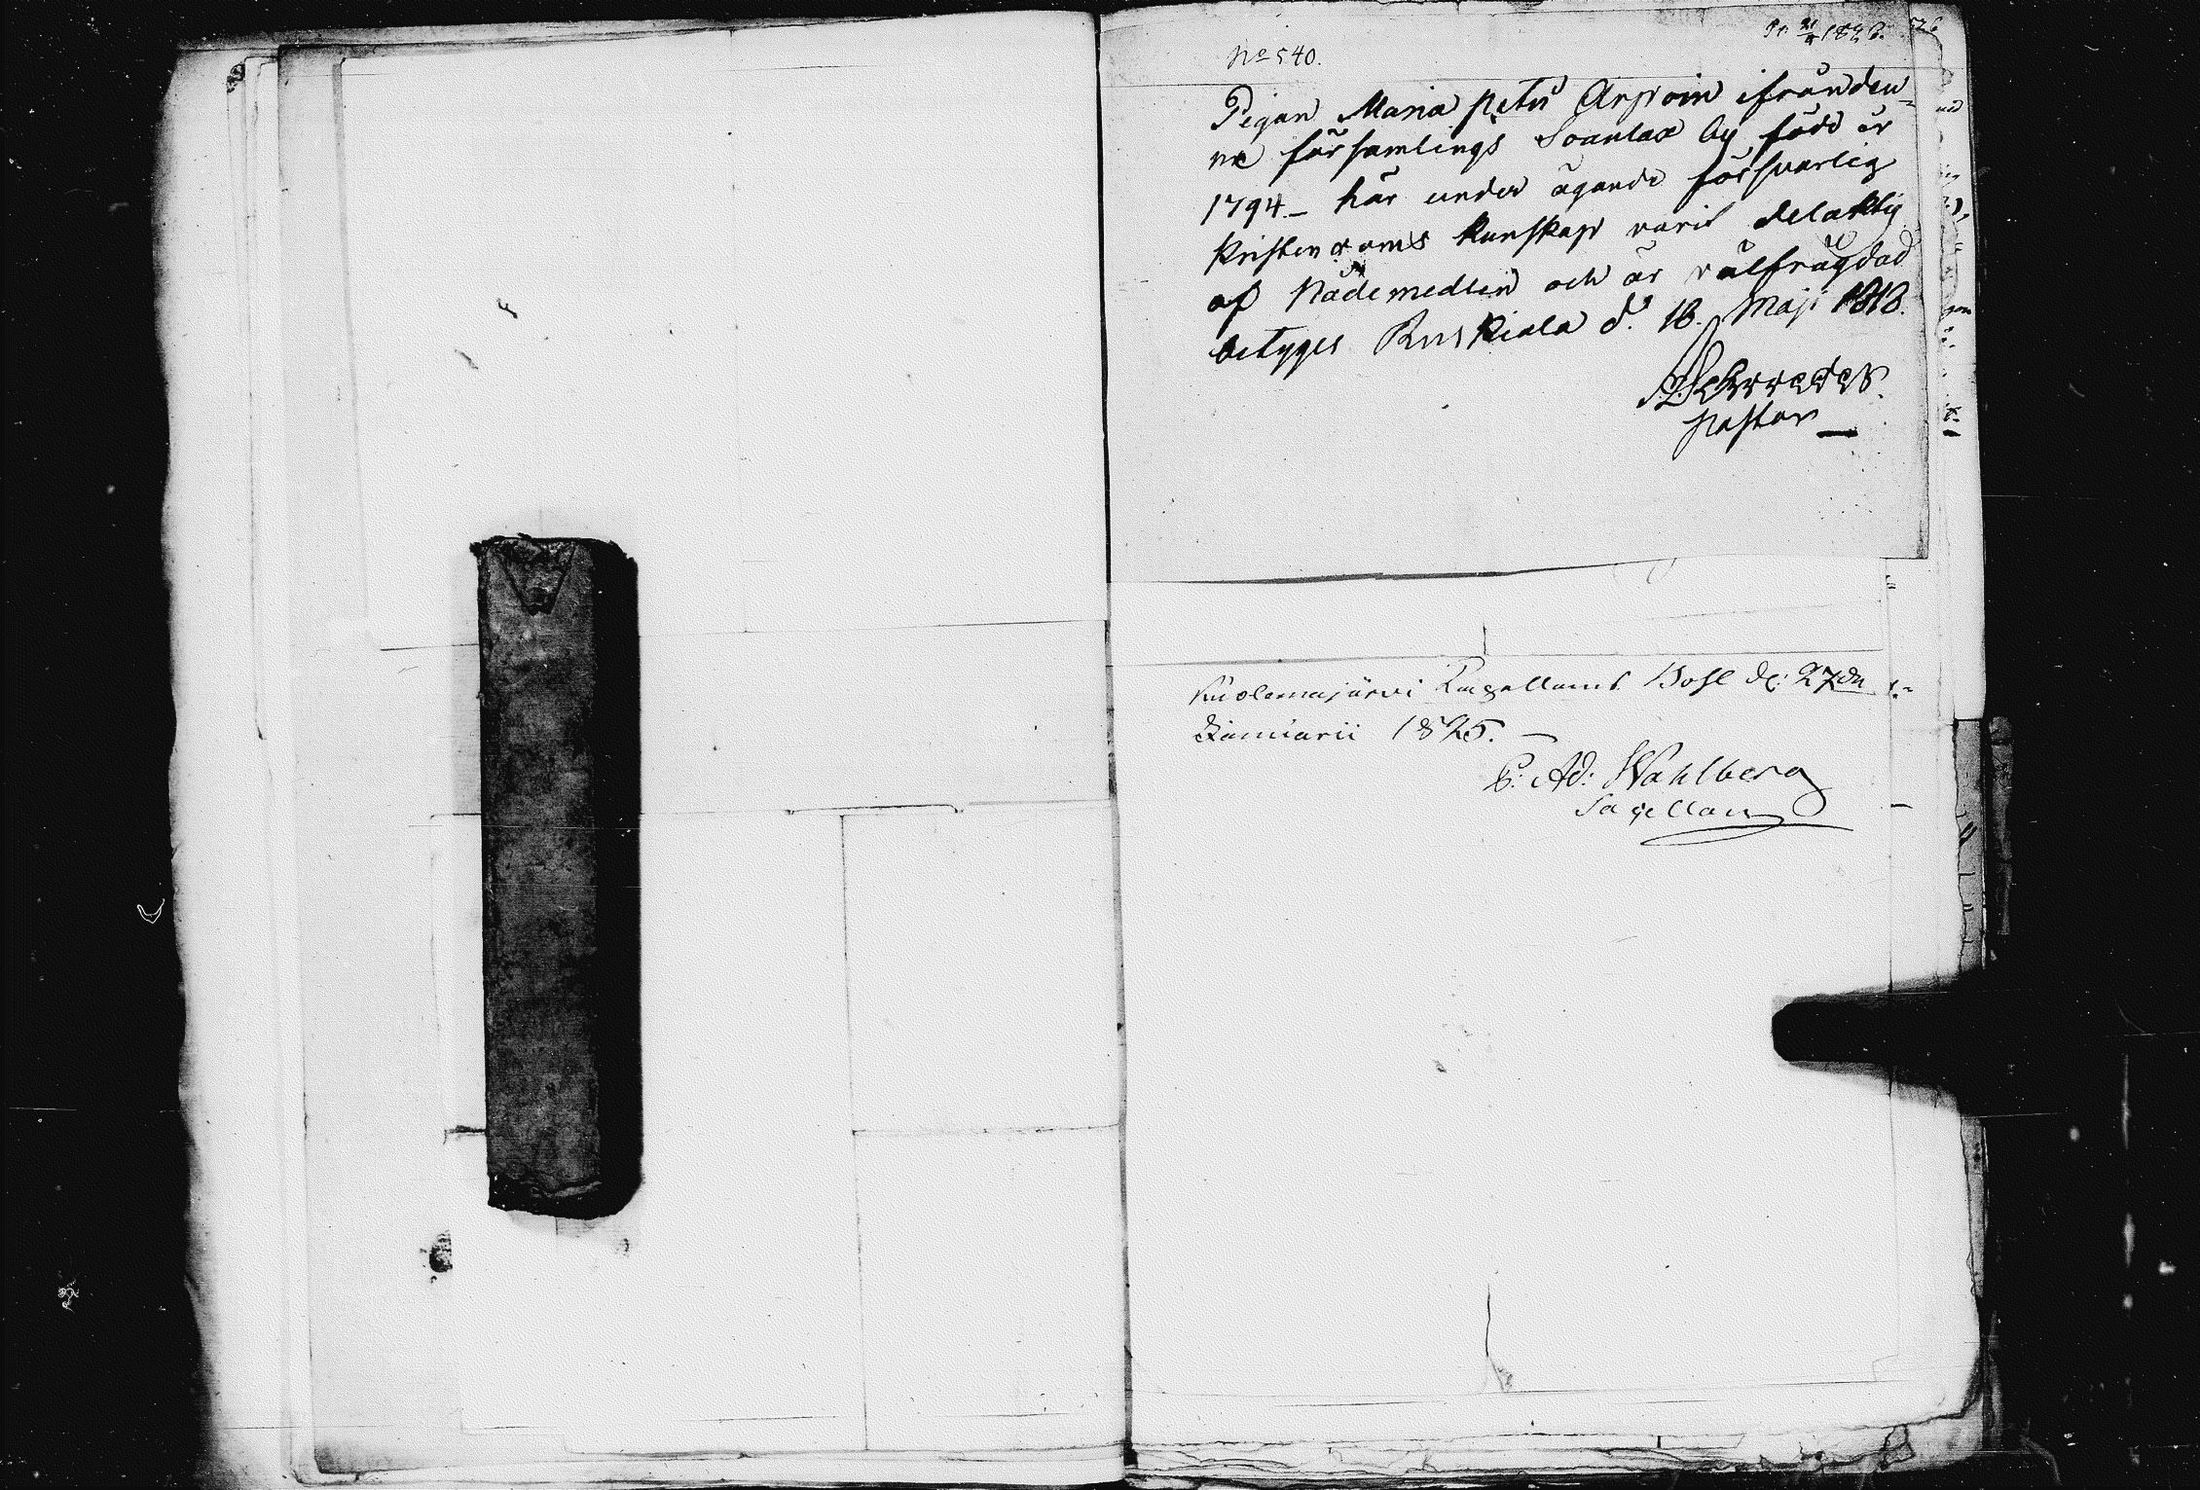 No 540.
Pigan Maria Petri Arpoin ifrån den-
na församlings Soanlax by född år
1794 – har under ägande försvarlig
Kristendoms kunskap varit delaktig
af Nådemedlen och är välfrägdad
betyges Ruskiala d. 18. Maji 1818.
Pastor
Kuolemajärvi Capellans Bohl d: 27de
Januarii 1825. –
Ad: Wahlberg
Sacellan